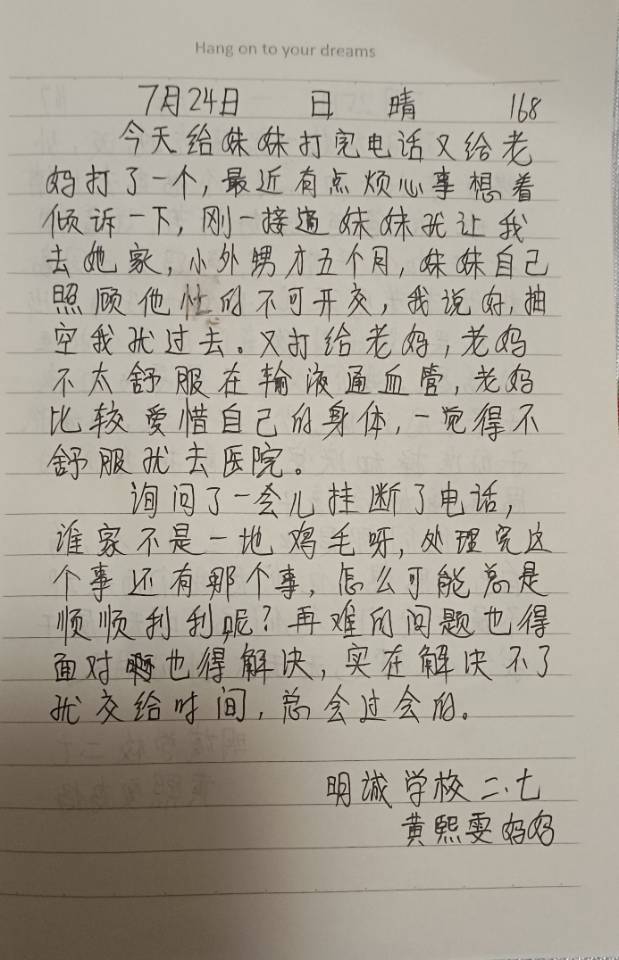 Hang on to your dreams
7月24日 日 晴 168
今天给妹妹打完电话又给老
妈打了一个，最近有点烦心事想着
倾诉一下，刚一接通妹妹就让我
去她家，小外男才五个月，妹妹自己
照顾他忙的不可开交，我说好，抽
空我就过去。又打给老妈，老妈
不太舒服在输液通血管，老妈
比较爱惜自己的身体，一觉得不
舒服就去医院。
询问了一会儿挂断了电话，
谁家不是一地鸡毛呀，处理完这
个事还有那个事，怎么可能总是
顺顺利利呢？再难的问题也得
面对也得解决，实在解决不了
就交给时间，总会过会的。
明诚学校二.七
黄熙雯妈妈